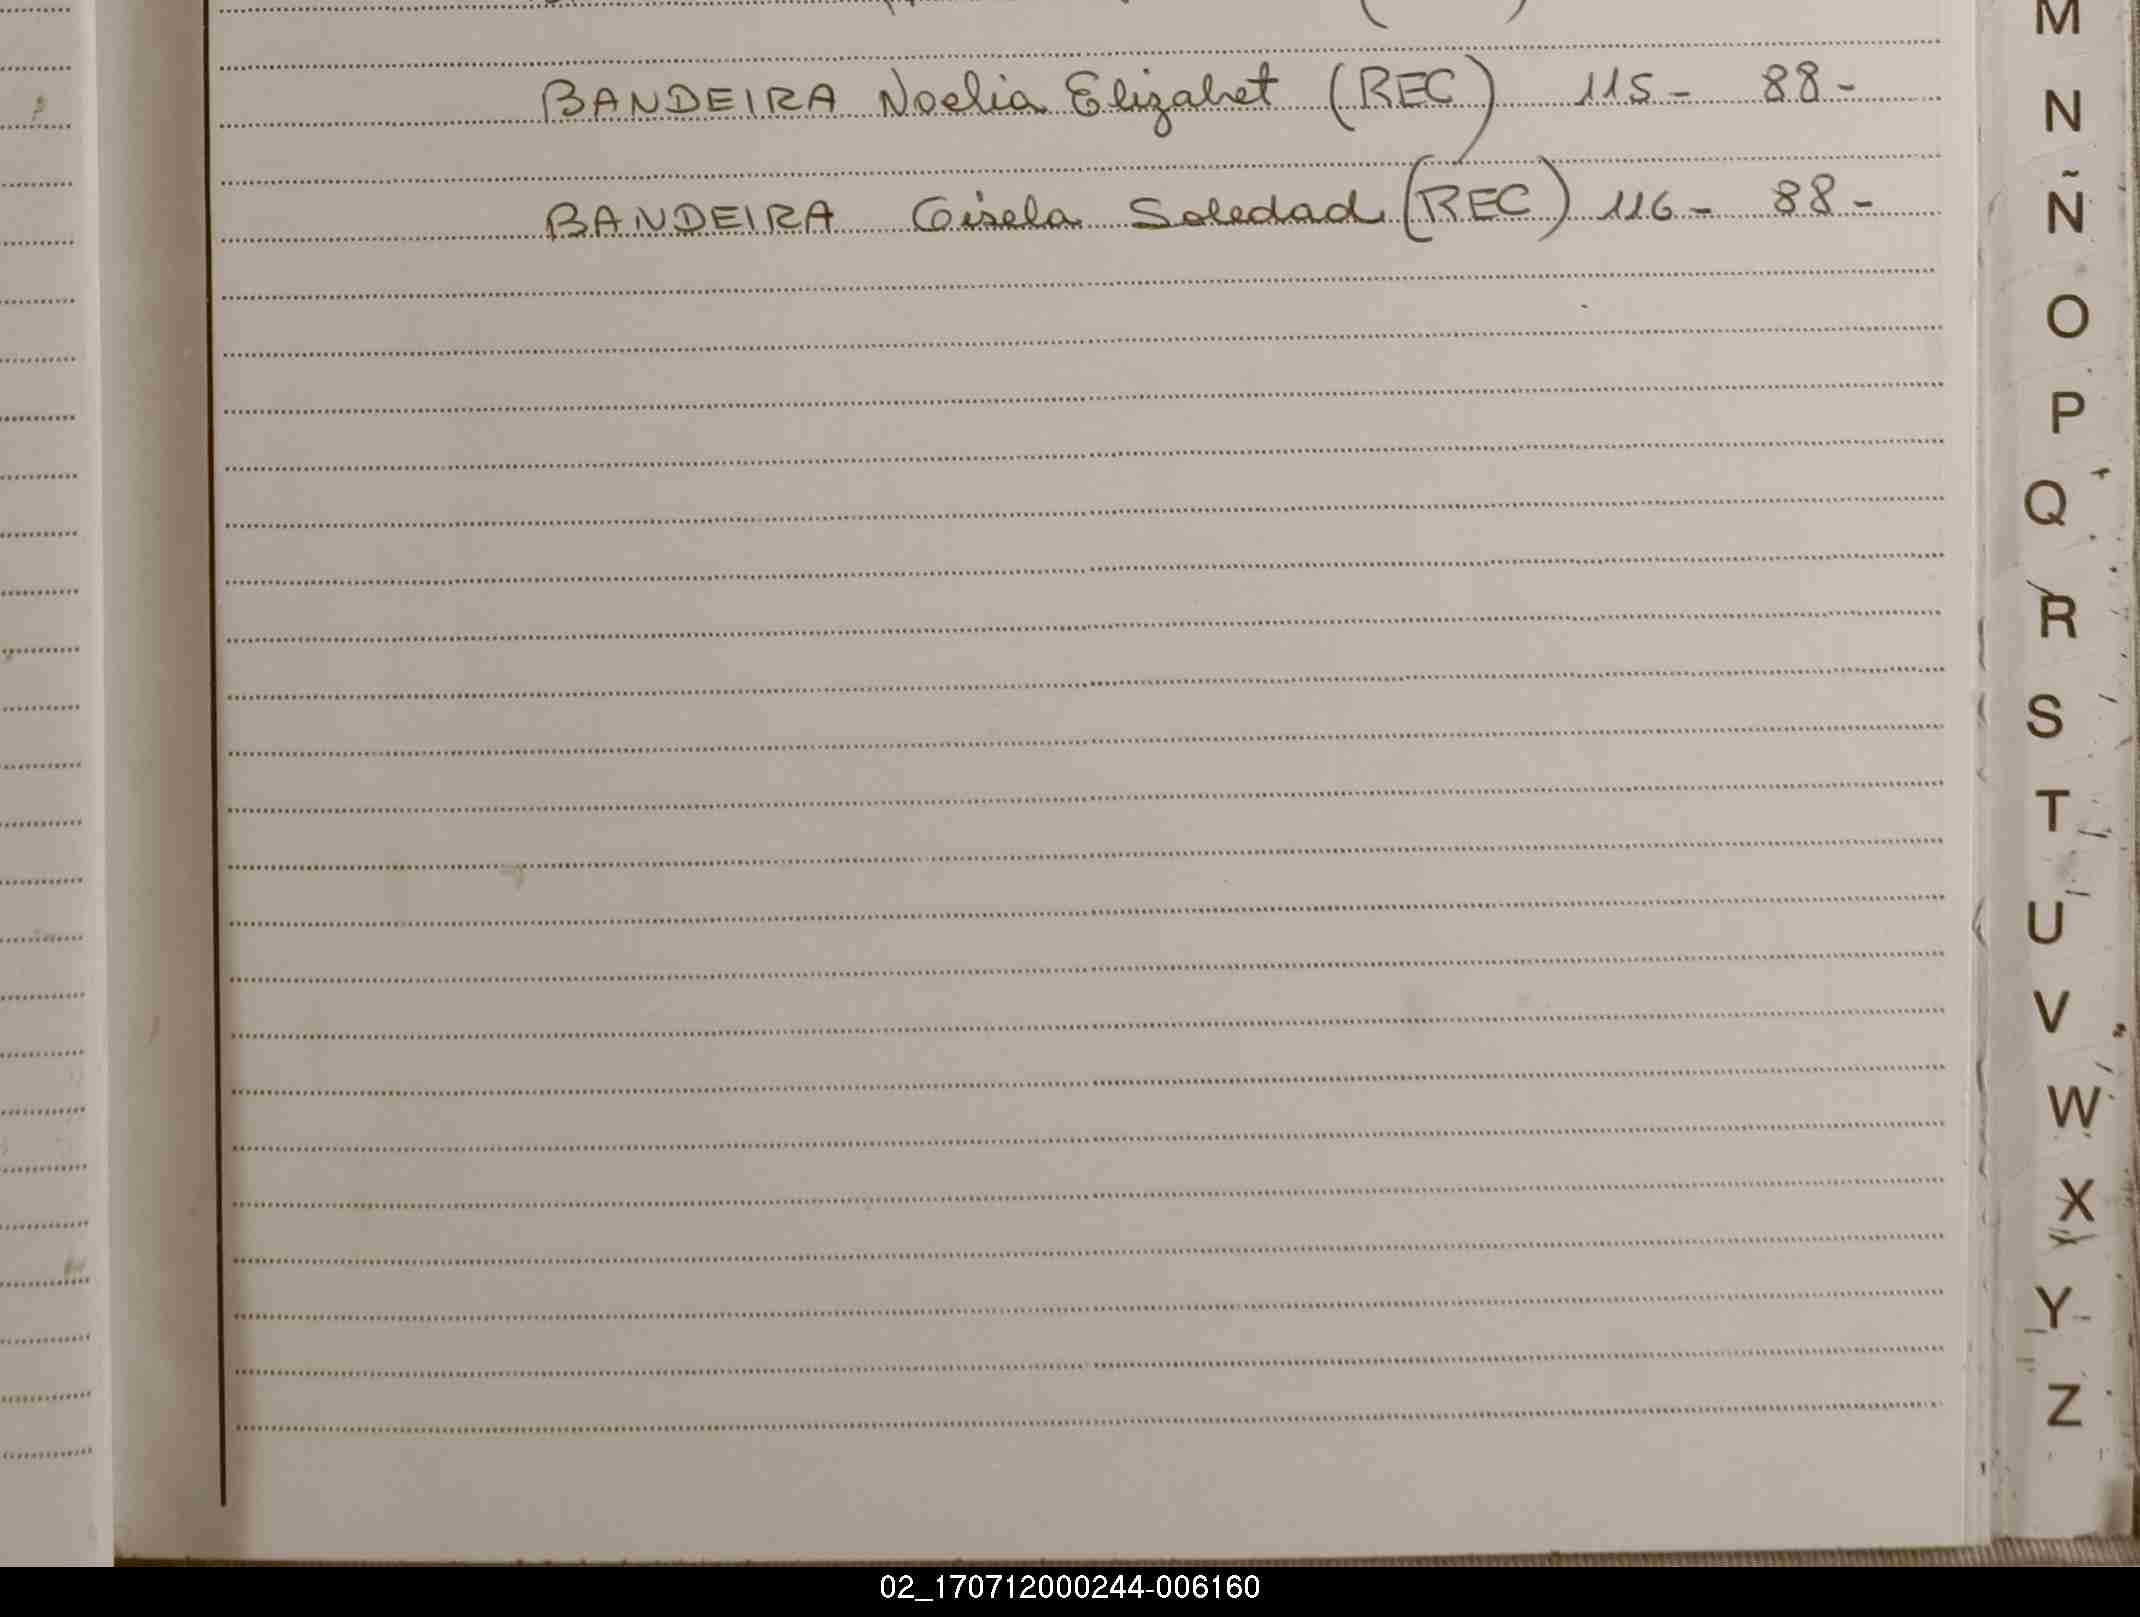 BANDEIRA Noelia Elizabet (REC) 115- 88-
BANDEIRA Gisela Soledad (REC) 116- 88-
M
N
Ñ
O
P
Q
R
S
T
U
V
W
X
Y
Z
02_170712000244-006160